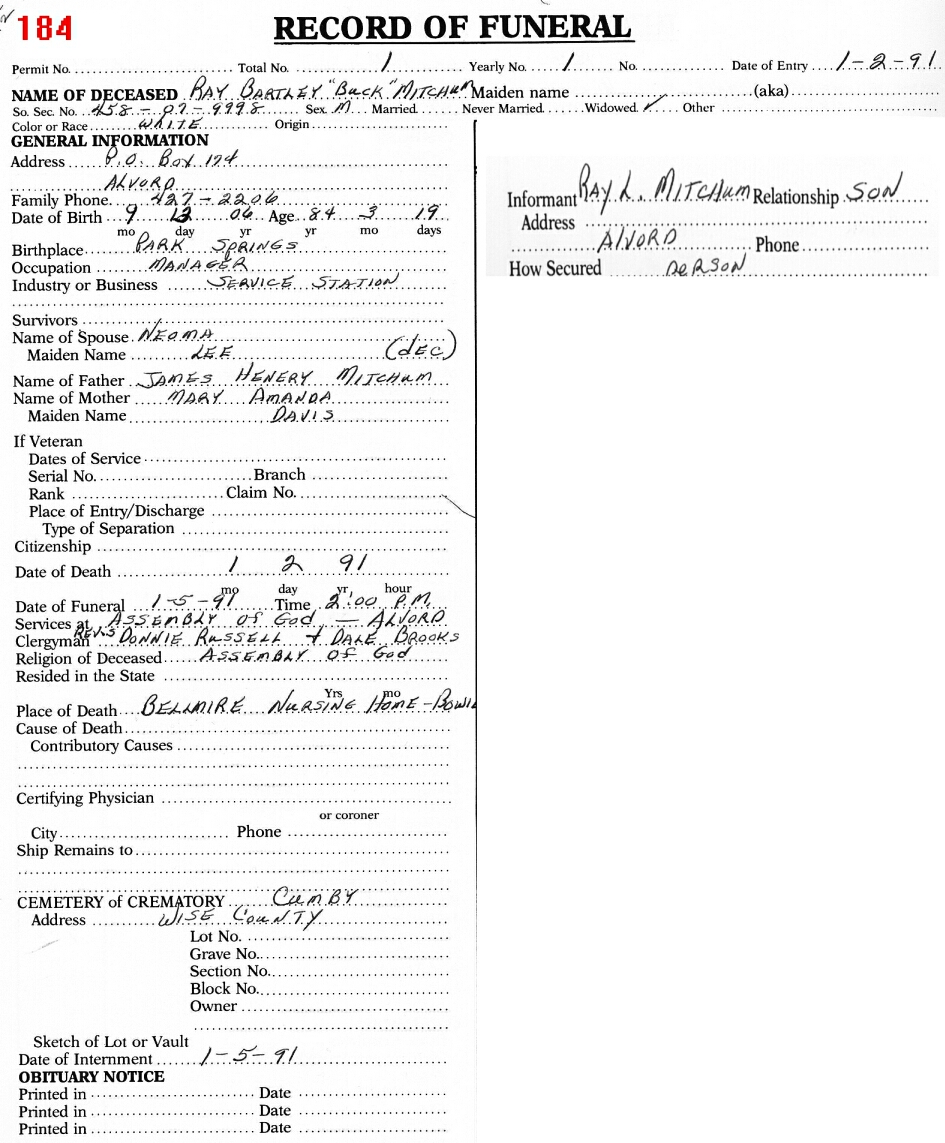 184
RECORD OF FUNERAL
Permit No. Total No. 1 Yearly No. 1 No. Date of Entry 1-2-91
NAME OF DECEASED RAY BARTLEY "BUCK" MITCHUM Maiden name (aka)
So. Sec. No. 458-07-9998 Sex M Married Never Married Widowed ✓ Other
Color or Race WHITE Origin
GENERAL INFORMATION
Address P.O. BOX 174
ALVORD
Family Phone 427-2206
Date of Birth 9 13 06 Age 84 3 19
mo day yr yr mo days
Birthplace PARK SPRINGS
Occupation MANAGER
Industry or Business SERVICE STATION
Survivors
Name of Spouse NEOMA
Maiden Name LEE (dec)
Name of Father JAMES HENERY MITCHUM
Name of Mother MARY AMANDA
Maiden Name DAVIS
If Veteran
Dates of Service
Serial No. Branch
Rank Claim No.
Place of Entry/Discharge
Type of Separation
Citizenship
Date of Death 1 2 91
mo day yr hour
Date of Funeral 1-5-91 Time 2:00 P.M.
Services at ASSEMBLY OF GOD - ALVORD
Clergyman REV.S DONNIE RUSSELL + DALE BROOKS
Religion of Deceased ASSEMBLY OF GOD
Resided in the State
Yrs mo
Place of Death BELLMIRE NURSING HOME - BOWIE
Cause of Death
Contributory Causes
Certifying Physician
or coroner
City Phone
Ship Remains to
CEMETERY of CREMATORY CUMBY
Address WISE COUNTY
Lot No.
Grave No.
Section No.
Block No.
Owner
Sketch of Lot or Vault
Date of Internment 1-5-91
OBITUARY NOTICE
Printed in Date
Printed in Date
Printed in Date
Informant RAY L. MITCHUM Relationship SON
Address
ALVORD Phone
How Secured PERSON